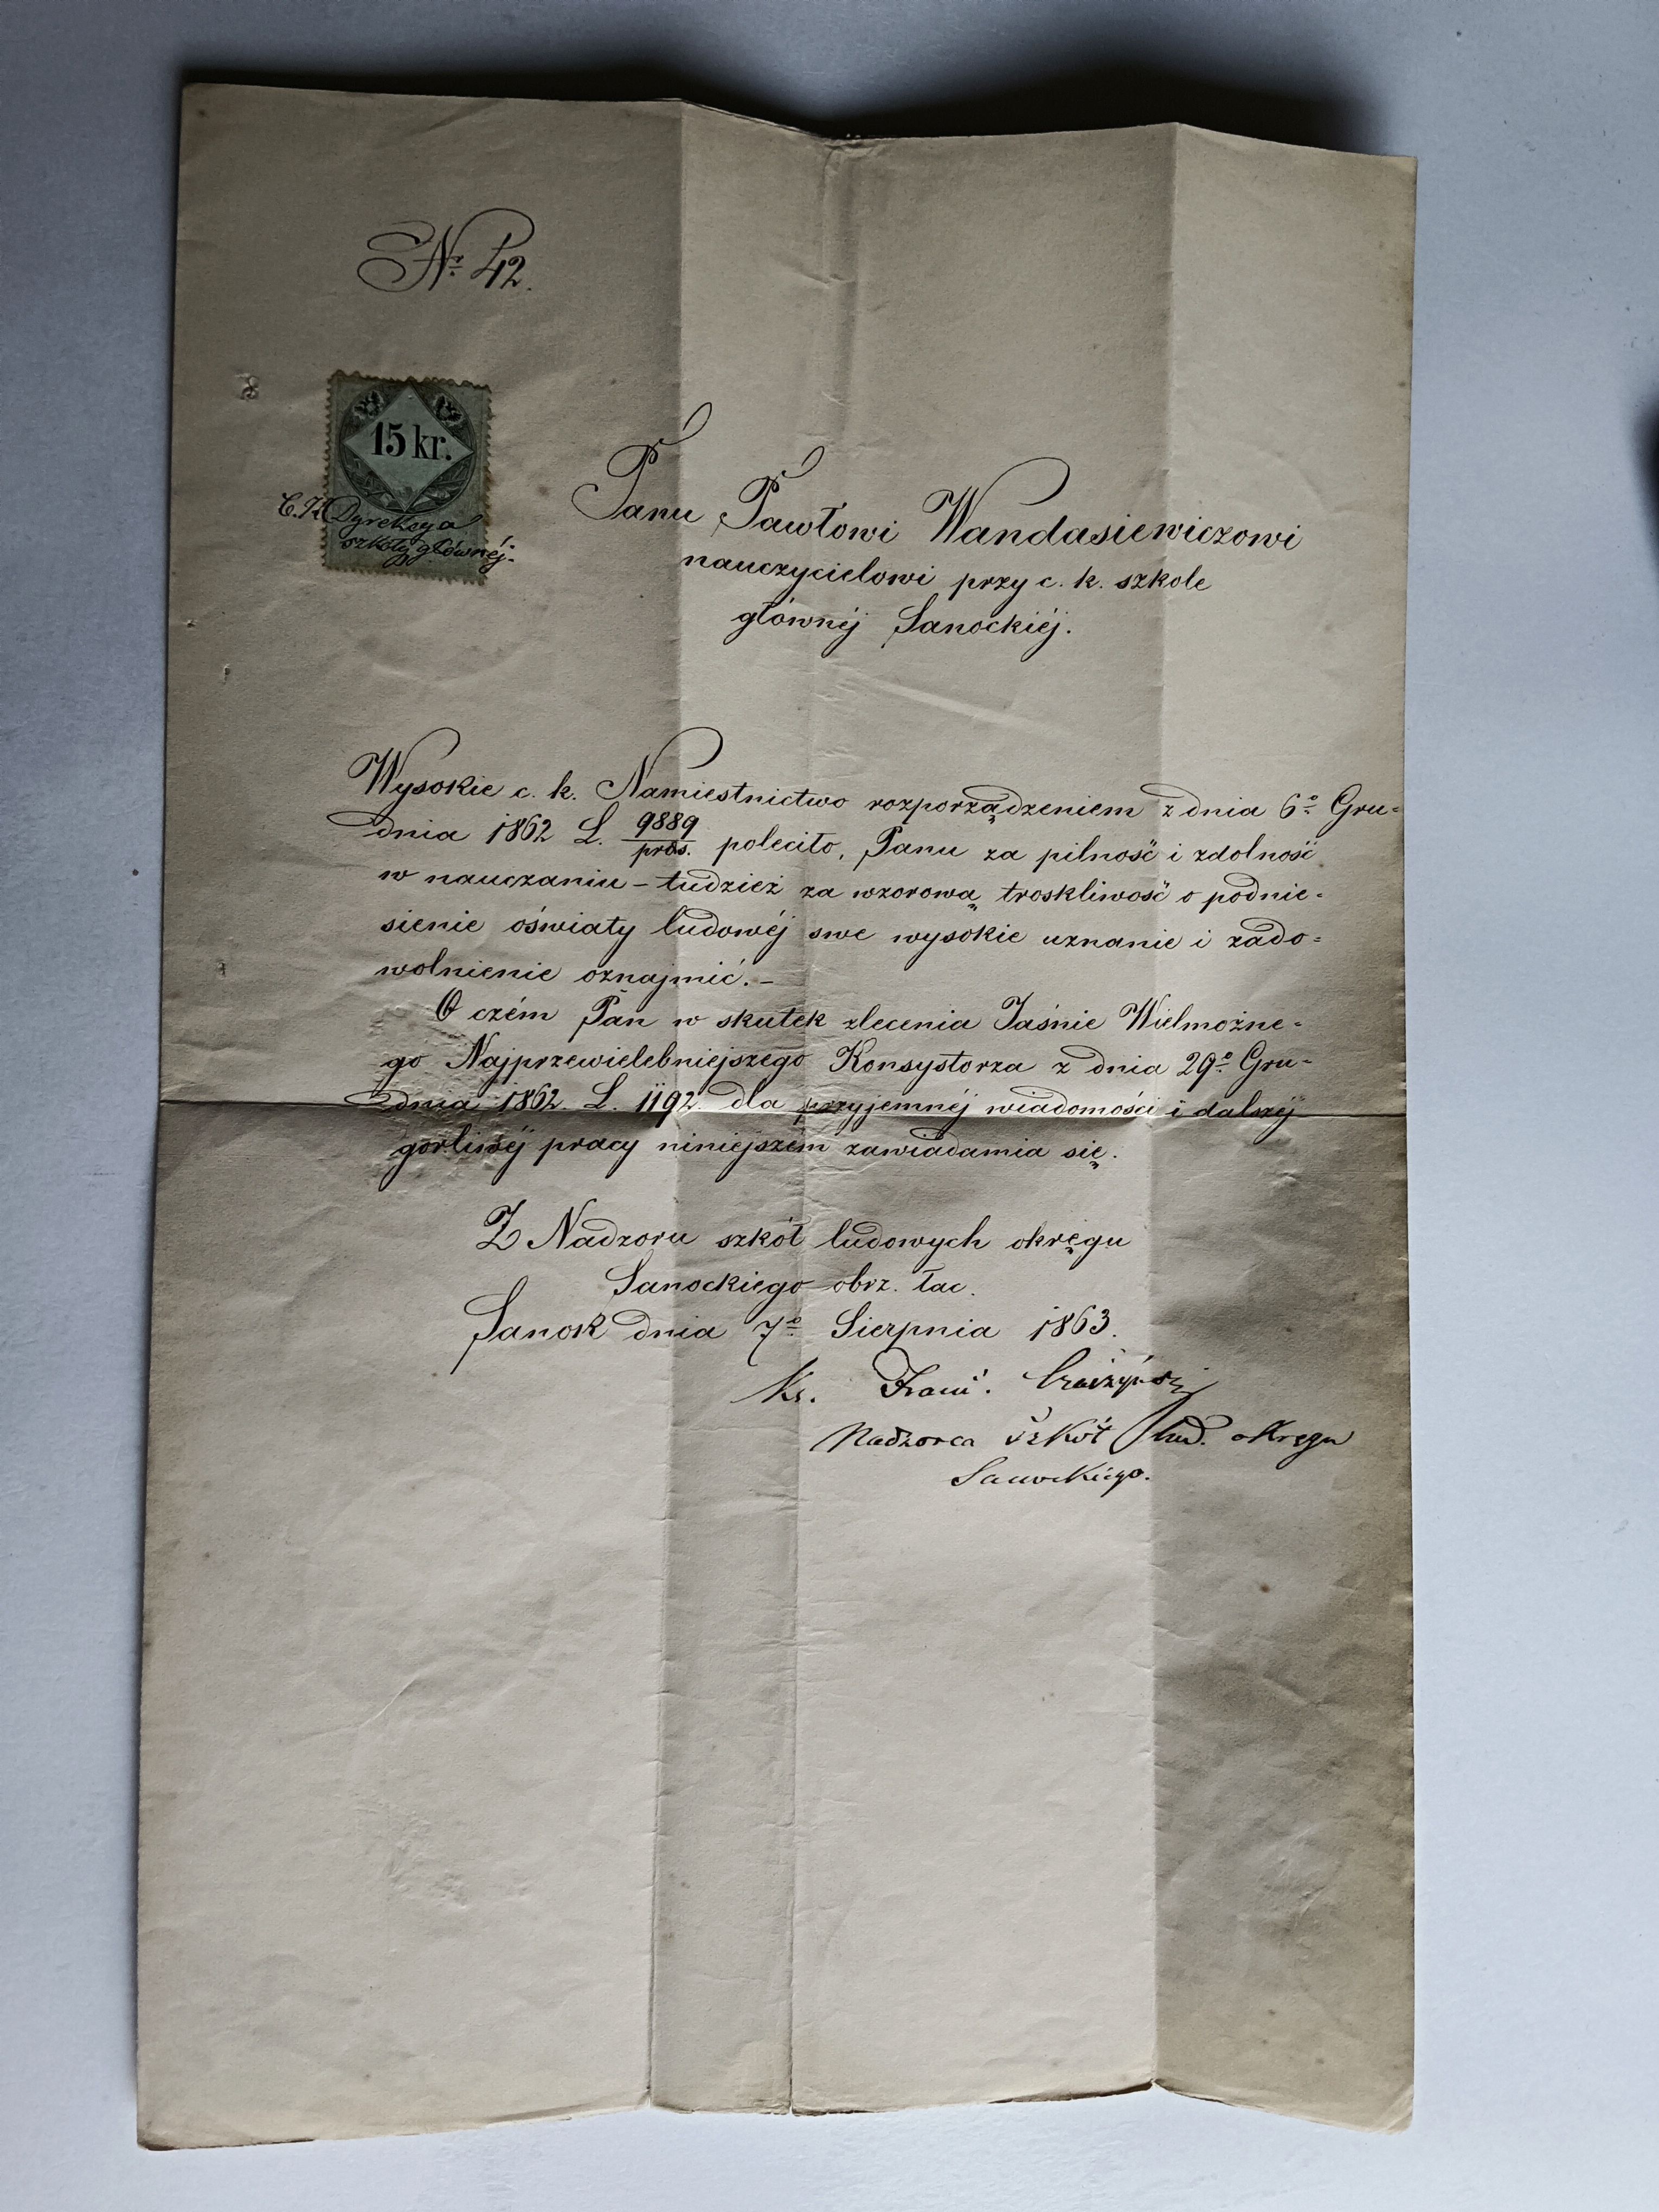 Nr 42.
15 kr.
C. K. Dyrekcya
szkoły głównéj.
Panu Pawłowi Wandasiewiczowi
nauczycielowi przy c. k. szkole
głównéj Sanockiéj.
Wysokie c. k. Namiestnictwo rozporządzeniem z dnia 6º Gru=
dnia 1862 L. 9889/præs. poleciło, Panu za pilność i zdolność
w nauczaniu – tudzież za wzorową troskliwość o podnie=
sienie oświaty ludowéj swe wysokie uznanie i zado=
wolnienie oznajmić. –
O czém Pan w skutek zlecenia Jaśnie Wielmożne=
go Najprzewielebniejszego Konsystorza z dnia 29º Gru=
dnia 1862. L. 1192. dla przyjemnéj wiadomości i dalszéj
gorliwéj pracy niniejszém zawiadamia się.
Z Nadzoru szkół ludowych okręgu
Sanockiego obrz. łac.
Sanok dnia 7º Sierpnia 1863.
Ks. Franc.
Nadzorca Szkół lud. okręgu
Sanockiego.